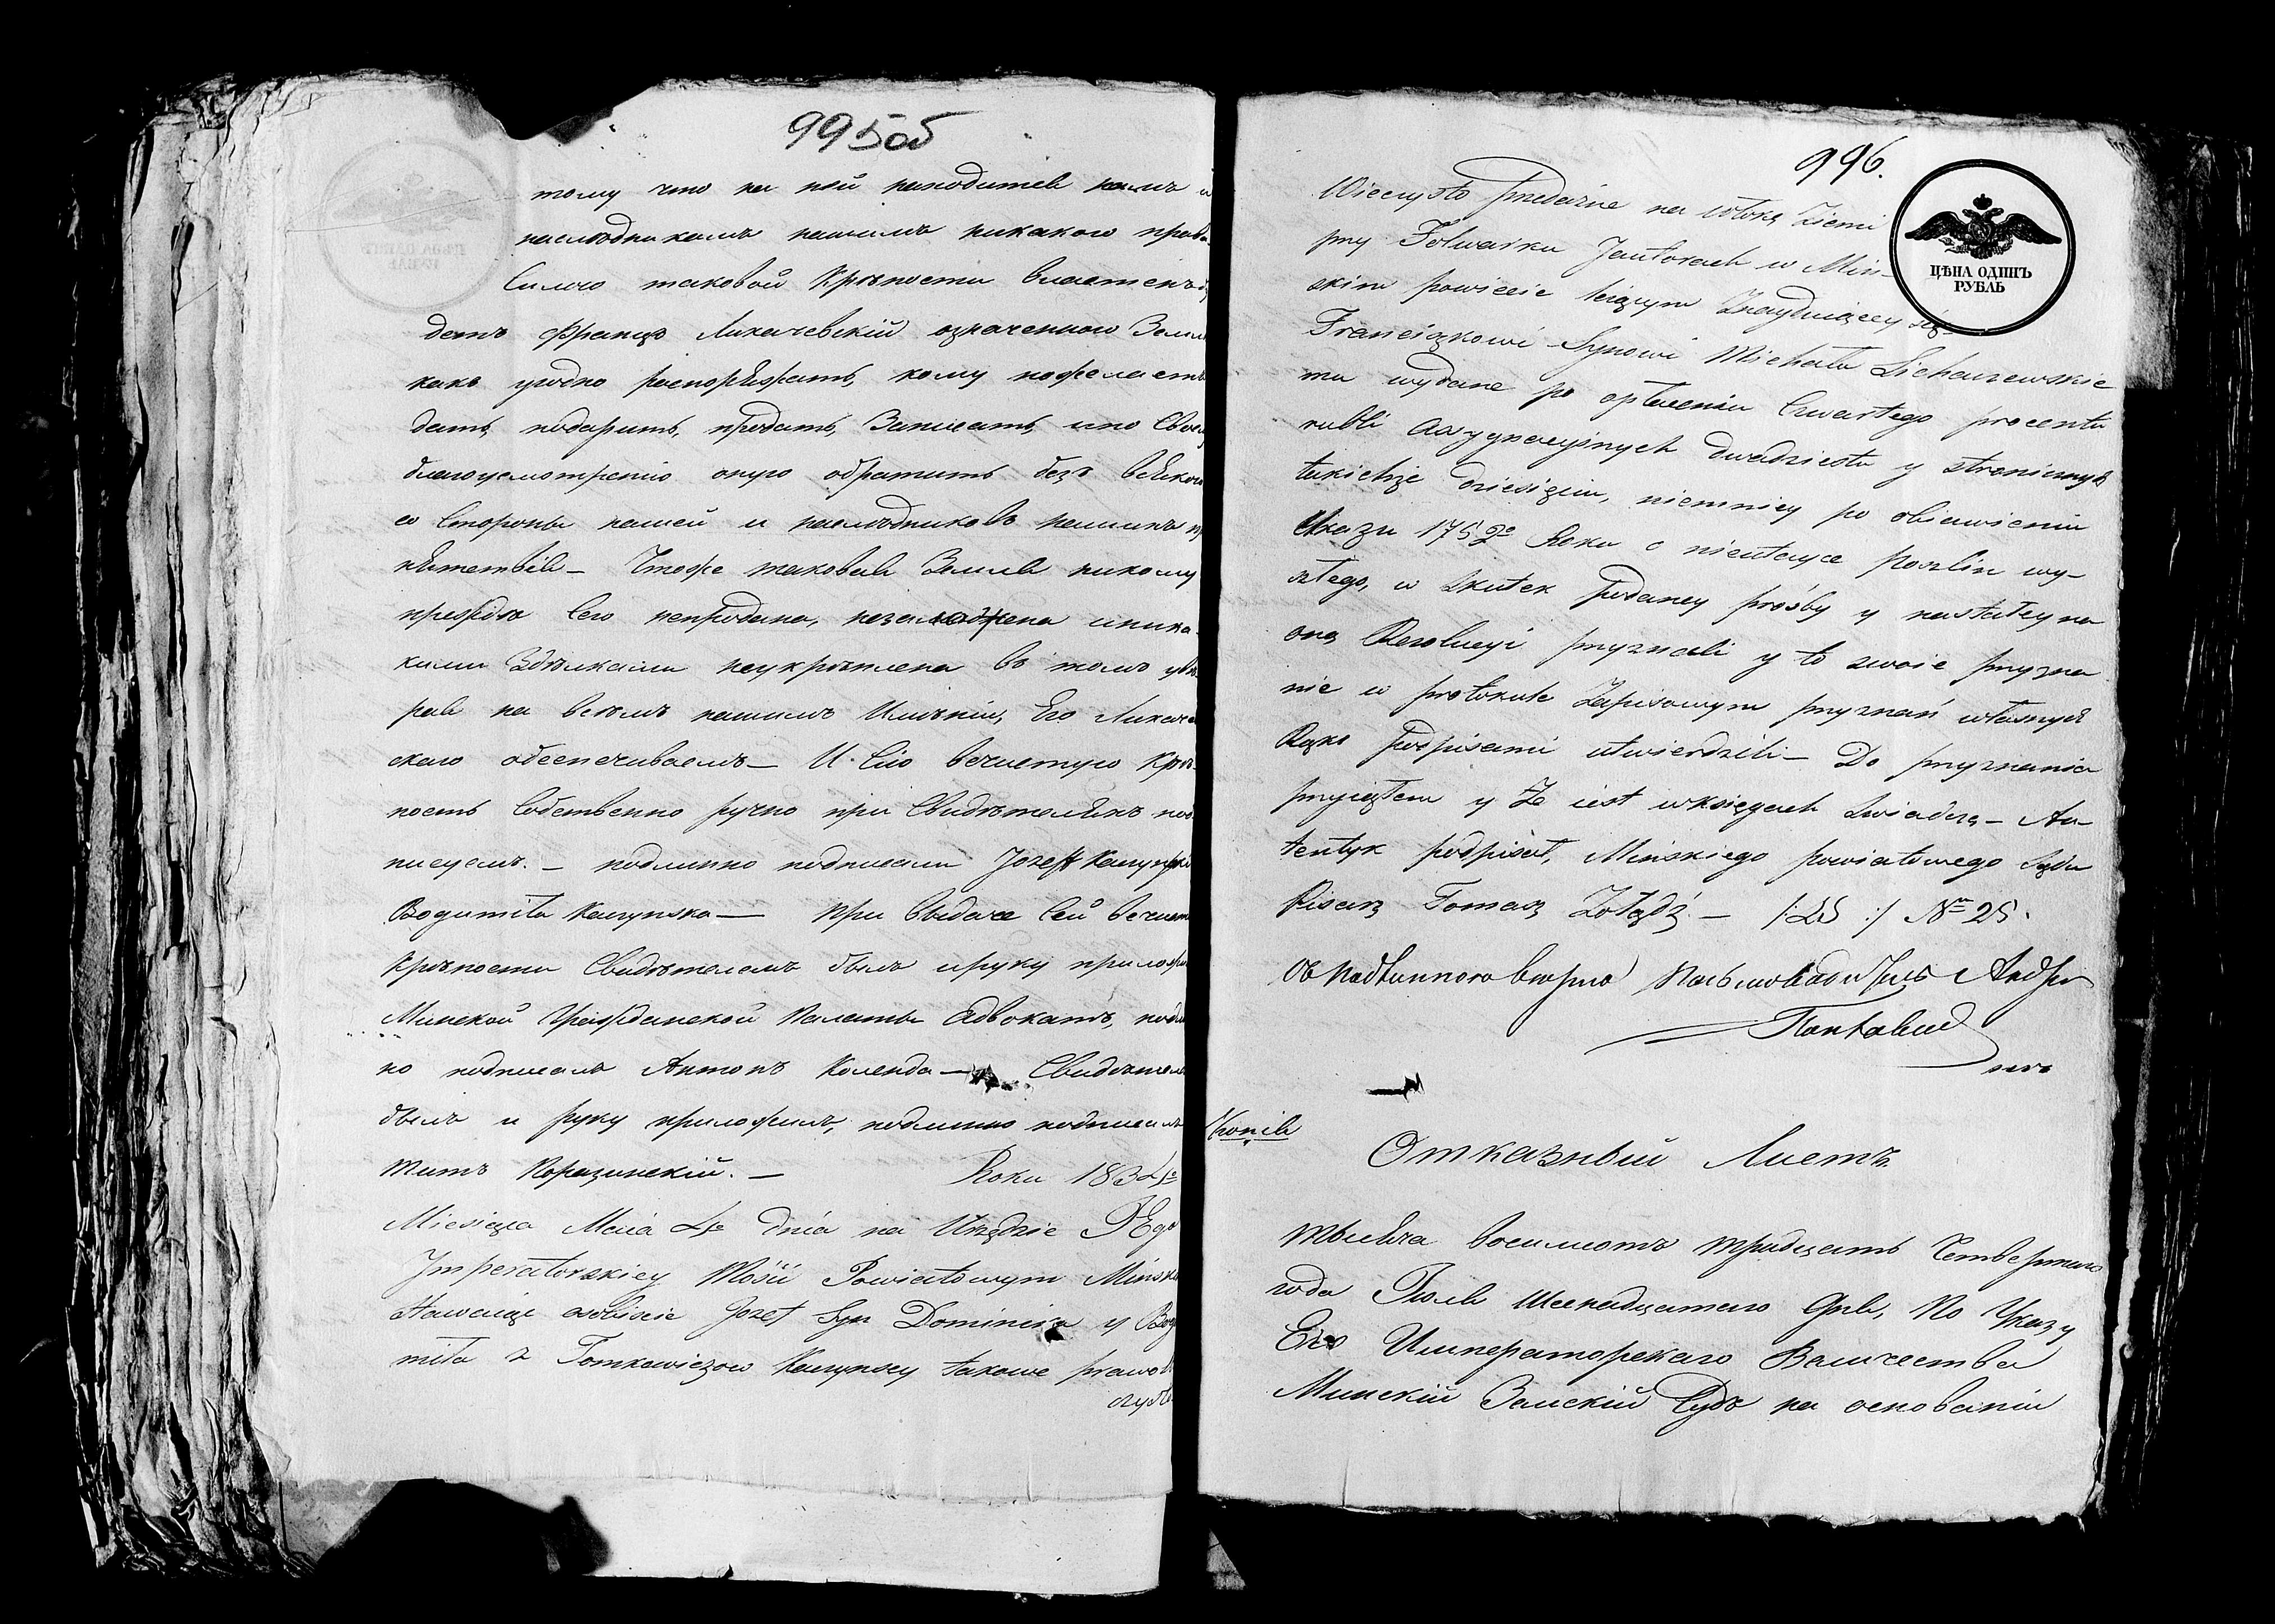 995об
тому что на ней находится намъ и
наслѣдникамъ нашимъ никакого права
Силою таковой Крѣпости властенъ бу
детъ Францъ Лихачевскій означенною Землею
какъ угодно распоряжать, кому пожелаетъ
дать, подарить, продать, Записать, и по Своему
благоусмотрѣнію оную обратить безъ всякого
со Стороны нашей и наслѣдниковъ нашихъ пре
пятствія — Чтоже таковая Земля никому
прежде Сего непродана, незаложена и ника-
кими Здѣлками неукрѣплена въ томъ увѣ
рая на всемъ нашимъ Имѣніи, Его Лихачев
скаго обеспечиваемъ — И Сію вечистую Крѣ-
пость Собственно ручно при Свидѣтеляхъ под
писуемъ. — подлинно подписали Jozeff Kaczyński
Bogumiła Kaczynska — При выдаче Сей вечистой
Крѣпости Свидѣтелемъ былъ и руку приложилъ
Минской Гражданской Палаты Адвокатъ, подлин
но подписалъ Антонъ Коленда — Свидѣтелемъ
былъ и руку приложилъ, подлинно подписалъ
Титъ Корезинскій. — Roku 1834º
Miesiąca Maia 4º dnia na Urzędzie JEgo
Jmperatorskiey Mości Powiatowym Minskim
Stawaiąc osobiście Jozef Syn Dominika y Bogu
miła z Tomkowiczow Kaczynscy takowe prawo Wie
czysto
996.
Wieczysto przedażne na włokę Ziemi
przy Folwarku Jantorach w Min-
skim powiecie leżącym Znayduiącey się
ЦѢНА ОДИНЪ
РУБЛЬ
Franciszkowi Synowi Michała Lichaczewskie
mu wydane po opłaceniu Czwartego procentu
rubli assygnacyinych dwadziestu y stronicnych
takichże dziesięciu, niemniey po obiawieniu
Ukazu 1752º Roku o nieutayce poszlin wy-
szłego, w skutek podaney prośby y nastałey na
onę Rezolucyi przyznali y to swoie przyzna
nie w protokule Zapisowym przyznań własnych
Rąk podpisami utwierdzili — Do przyznania
przyiąłem y Że iest w księgach Swiadczę — Au-
tentyk podpisał, Mińskiego powiatowego Sądu
Pisarz Tomasz Żołądź. — /:LS:/ Nr 25.
Съ подлиннаго верно Андрей
Копія
Отказный Листъ
Тысяча восимсотъ тридцать Четвертаго
года Іюля Шеснадцатаго Дня, По Указу
Его Императорскаго Величества
Минскій Земскій Судъ на основаніи